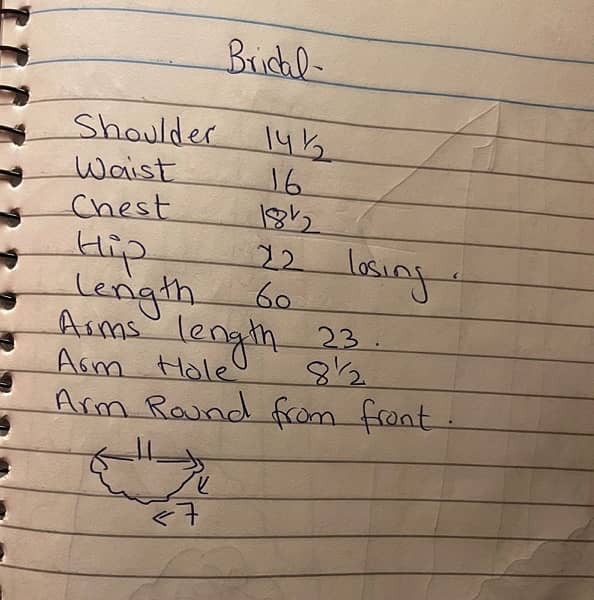 Bridal-
Shoulder 14 1/2
Waist 16
Chest 18 1/2
Hip 22 losing.
Length 60
Arms length 23.
Arm Hole 8 1/2
Arm Round from front.
11
7